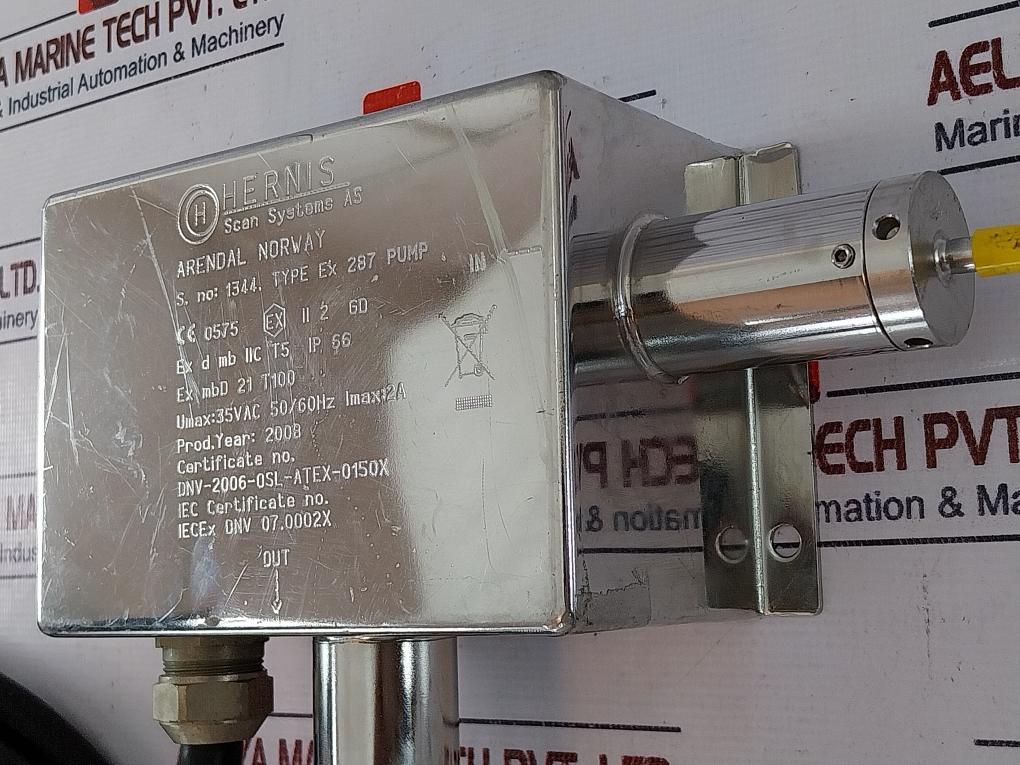 A MARINE TECH PVT.
& Industrial Automation & Machinery
AEL
Marin
LTD.
inery
MA
Indus
H
HERNIS
Scan Systems AS
ARENDAL NORWAY
S. no: 1344. TYPE Ex 287 PUMP
IN
CE 0575 EX II 2 GD
Ex d mb IIC T5 IP 66
Ex mbD 21 T100
Umax:35VAC 50/60Hz Imax:2A
Prod.Year: 2008
Certificate no.
DNV-2006-OSL-ATEX-0150X
IEC Certificate no.
IECEx DNV 07.0002X
OUT
ECH PVT
mation & Ma
YA MA